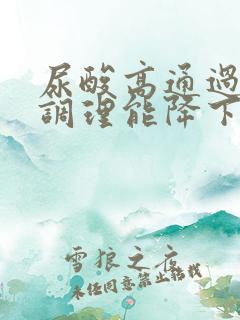 尿酸高通過
調理能降下
雪狼之夜
未任同意禁止轉載